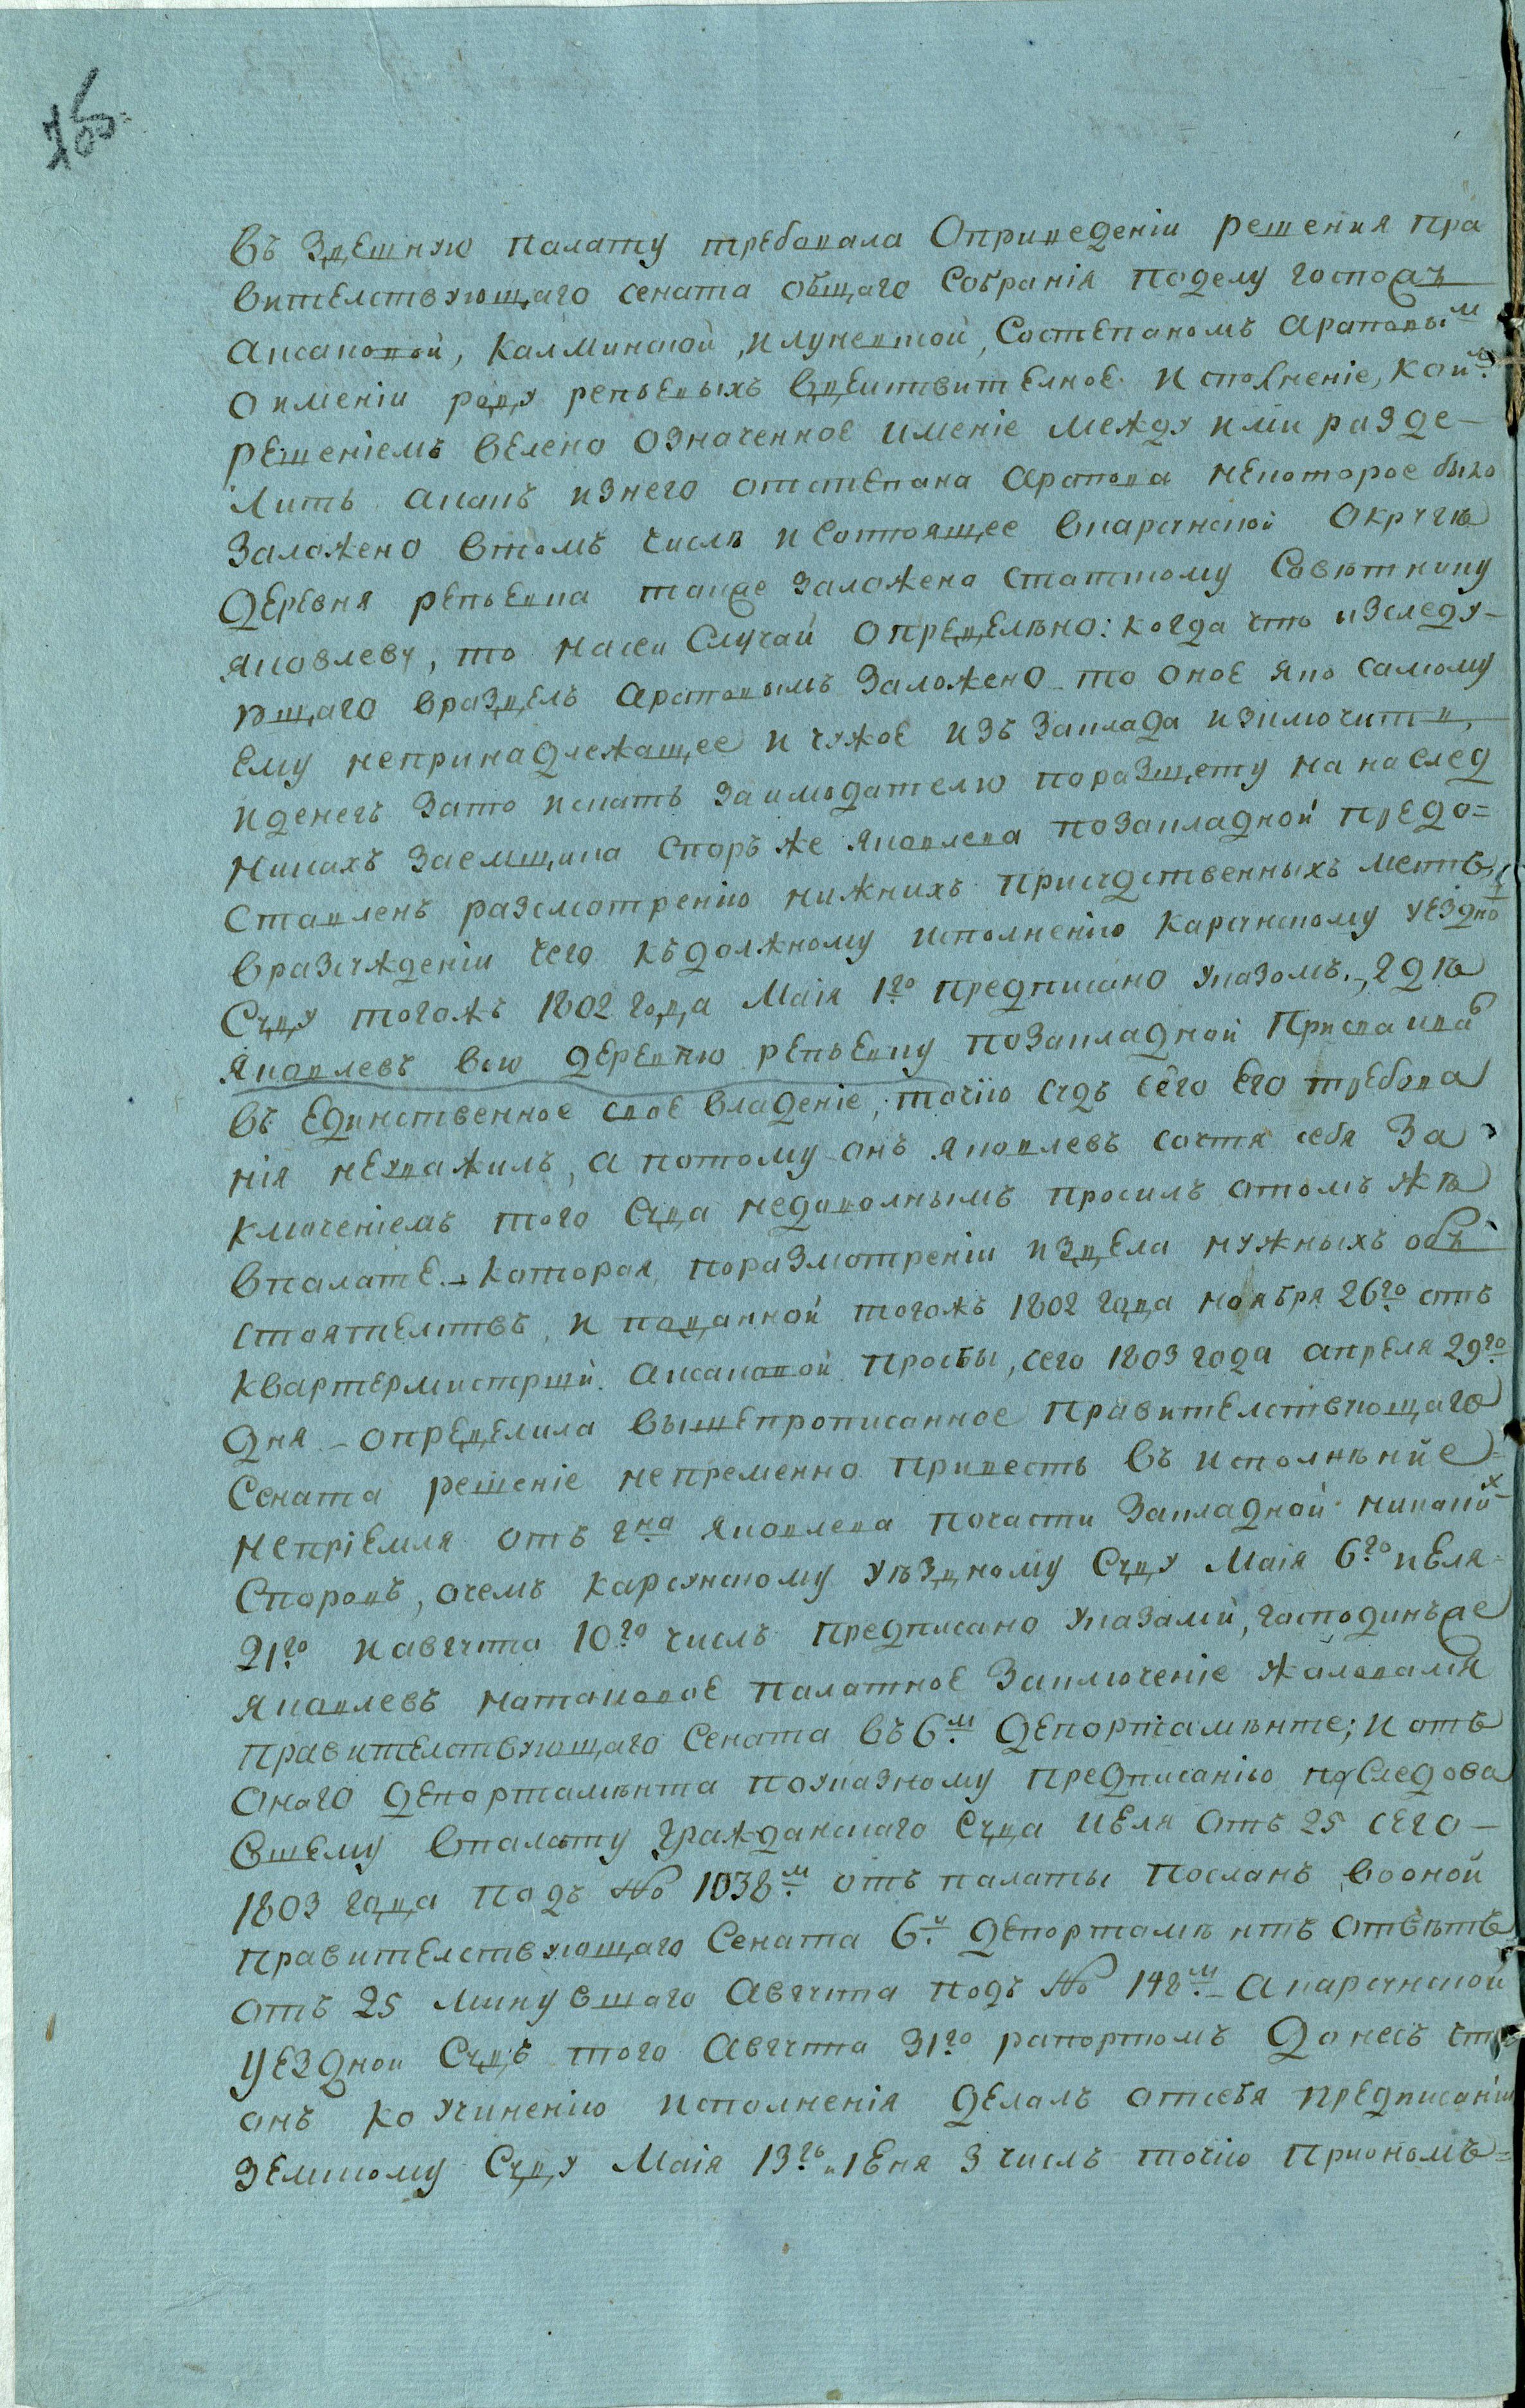 въ Здешнюю палату требовала Оприведенiи решения пра
вителствующаго сената общаго Собранiя поделу господъ
Аксаковой, Калминской, илуневской, Состепаномъ Араповым
Оименiи роду репьевыхъ вдеиствителное исполненiе, коим
решенiемъ велено означенное именiе между ими разде-
лить акакъ изнего отстепана Арапова некоторое было
заложено втомъ числѣ исостоящее вкарсунской Округѣ
Деревня репьевка такде заложена статскому Совѣтнику
яковлеву, то насеи Случаи опредѣлѣно: когда что изследу-
ющаго враздѣлъ Араповымъ заложено то оное яко самому
ему непринадлежащее и чужое изъ заклада изключить,
иденегъ зато искать заимодателю поразщету на наслед
никахъ заемщика споръ же яковлева позакладной предо=
ставленъ разсмотренiю нижнихъ присудственныхъ местъ,
вразсужденiи чего къдолжному исполненiю карсунскому уѣздно
Суду тогожъ 1802 года Маiя 1го предписано указомъ., гдѣ
яковлевъ всю деревню репьевку позакладной присвоивъ
въ единственное свое владенiе, точiю судъ сего его требова
нiя неуважилъ, а потому онъ яковлевъ сочтя себя за
ключенiемъ того Суда недоволнымъ просилъ отомъ жѣ
впалате. которая поразмотренiи издела нужныхъ объ
стоятелствъ, и поданной тогожъ 1802 года ноября 26го отъ
квартермистрши Аксаковой прозбы, сего 1803 года апреля 29го
дня - определила вышепрописанное правителствующаго
Сената решенiе непременно привесть въ исполнѣние=
неприемля отъ гна яковлева почасти закладной никаких
споровъ, очемъ карсунскому уѣздному Суду Маiя 6го иеля
21го иавгуста 10го числъ предписано указами, господинъде
яковлевъ натаковое палатное заключенiе жаловался
правителствующаго Сената въ 6м Департамѣнте; и отъ
онаго департамѣнта поуказному предписанiю последова
вшему впалату гражданскаго Суда иеля отъ 25 сего-
1803 года подъ № 1038м отъ палаты посланъ воной
правителствующаго Сената 6й департамѣнтъ отвѣтъ
отъ 25 минувшаго Августа подъ № 148м акарсунской
уездной Судъ того Августа 31го рапортомъ донесъ что
онъ ко учиненiю исполненiя делалъ отсебя предписанiи
земскому Суду Маiя 13го iеня 3 числъ точiю приономъ=